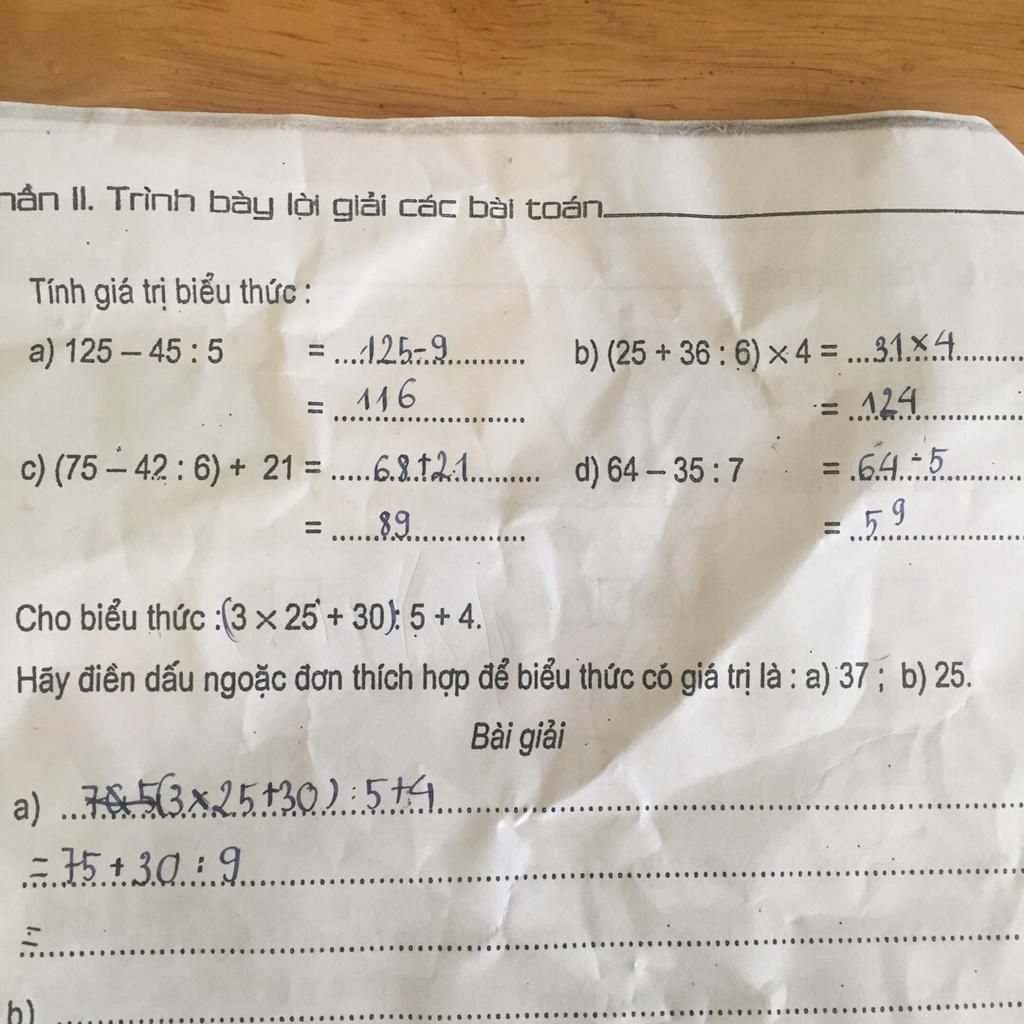 hần II. Trình bày lời giải các bài toán
Tính giá trị biểu thức :
a) 125 – 45 : 5 = 125-9 b) (25 + 36 : 6) × 4 = 31×4
= 116 = 124
c) (75 – 42 : 6) + 21 = 68+21 d) 64 – 35 : 7 = 64-5
= 89 = 59
Cho biểu thức :(3 × 25 + 30): 5 + 4.
Hãy điền dấu ngoặc đơn thích hợp để biểu thức có giá trị là : a) 37 ; b) 25.
Bài giải
a) (3×25+30) : 5+4
= 75 + 30 : 9
=
b)